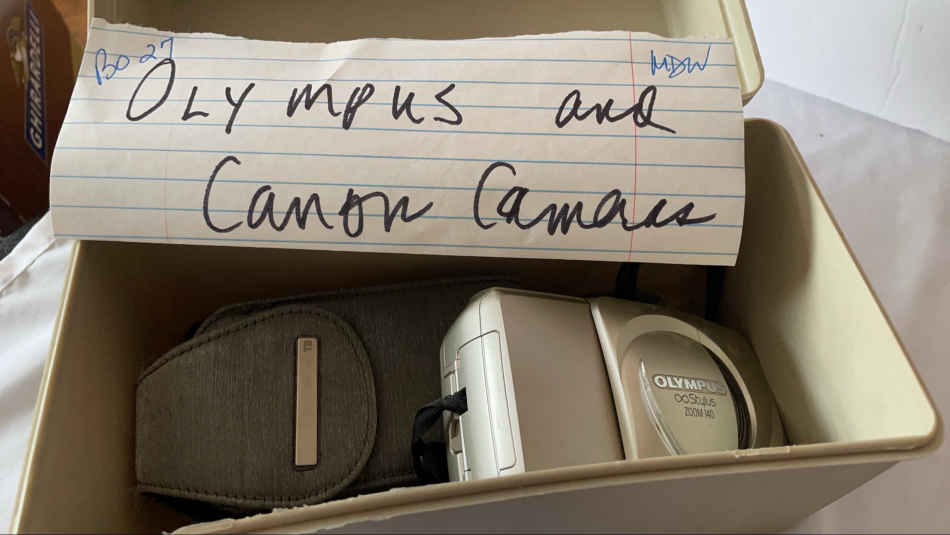 BO-27
MDW
OLYMPUS and
Canon Cameras
GHIRARDELLI
OLYMPUS
∞Stylus
ZOOM 140